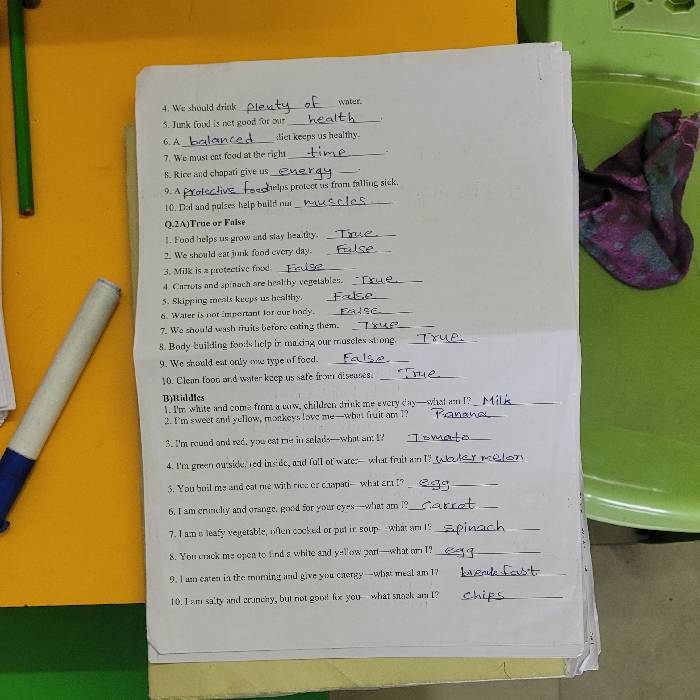 4. We should drink plenty of water.
5. Junk food is not good for our health.
6. A balanced diet keeps us healthy.
7. We must eat food at the right time.
8. Rice and chapati give us energy.
9. A protective food helps protect us from falling sick.
10. Dal and pulses help build our muscles
Q.2A)True or False
1. Food helps us grow and stay healthy. True
2. We should eat junk food every day. False
3. Milk is a protective food. False
4. Carrots and spinach are healthy vegetables. True
5. Skipping meals keeps us healthy. False
6. Water is not important for our body. False
7. We should wash fruits before eating them. True
8. Body-building foods help in making our muscles strong. True
9. We should eat only one type of food. False
10. Clean food and water keep us safe from diseases. True
B)Riddles
1. I'm white and come from a cow, children drink me every day—what am I? Milk
2. I'm sweet and yellow, monkeys love me—what fruit am I? Banana
3. I'm round and red, you eat me in salads—what am I? Tomato
4. I'm green outside, red inside, and full of water—what fruit am I? water melon
5. You boil me and eat me with rice or chapati—what am I? egg
6. I am crunchy and orange, good for your eyes—what am I? carrot
7. I am a leafy vegetable, often cooked or put in soup—what am I? spinach
8. You crack me open to find a white and yellow part—what am I? egg
9. I am eaten in the morning and give you energy—what meal am I? breakfast
10. I am salty and crunchy, but not good for you—what snack am I? chips